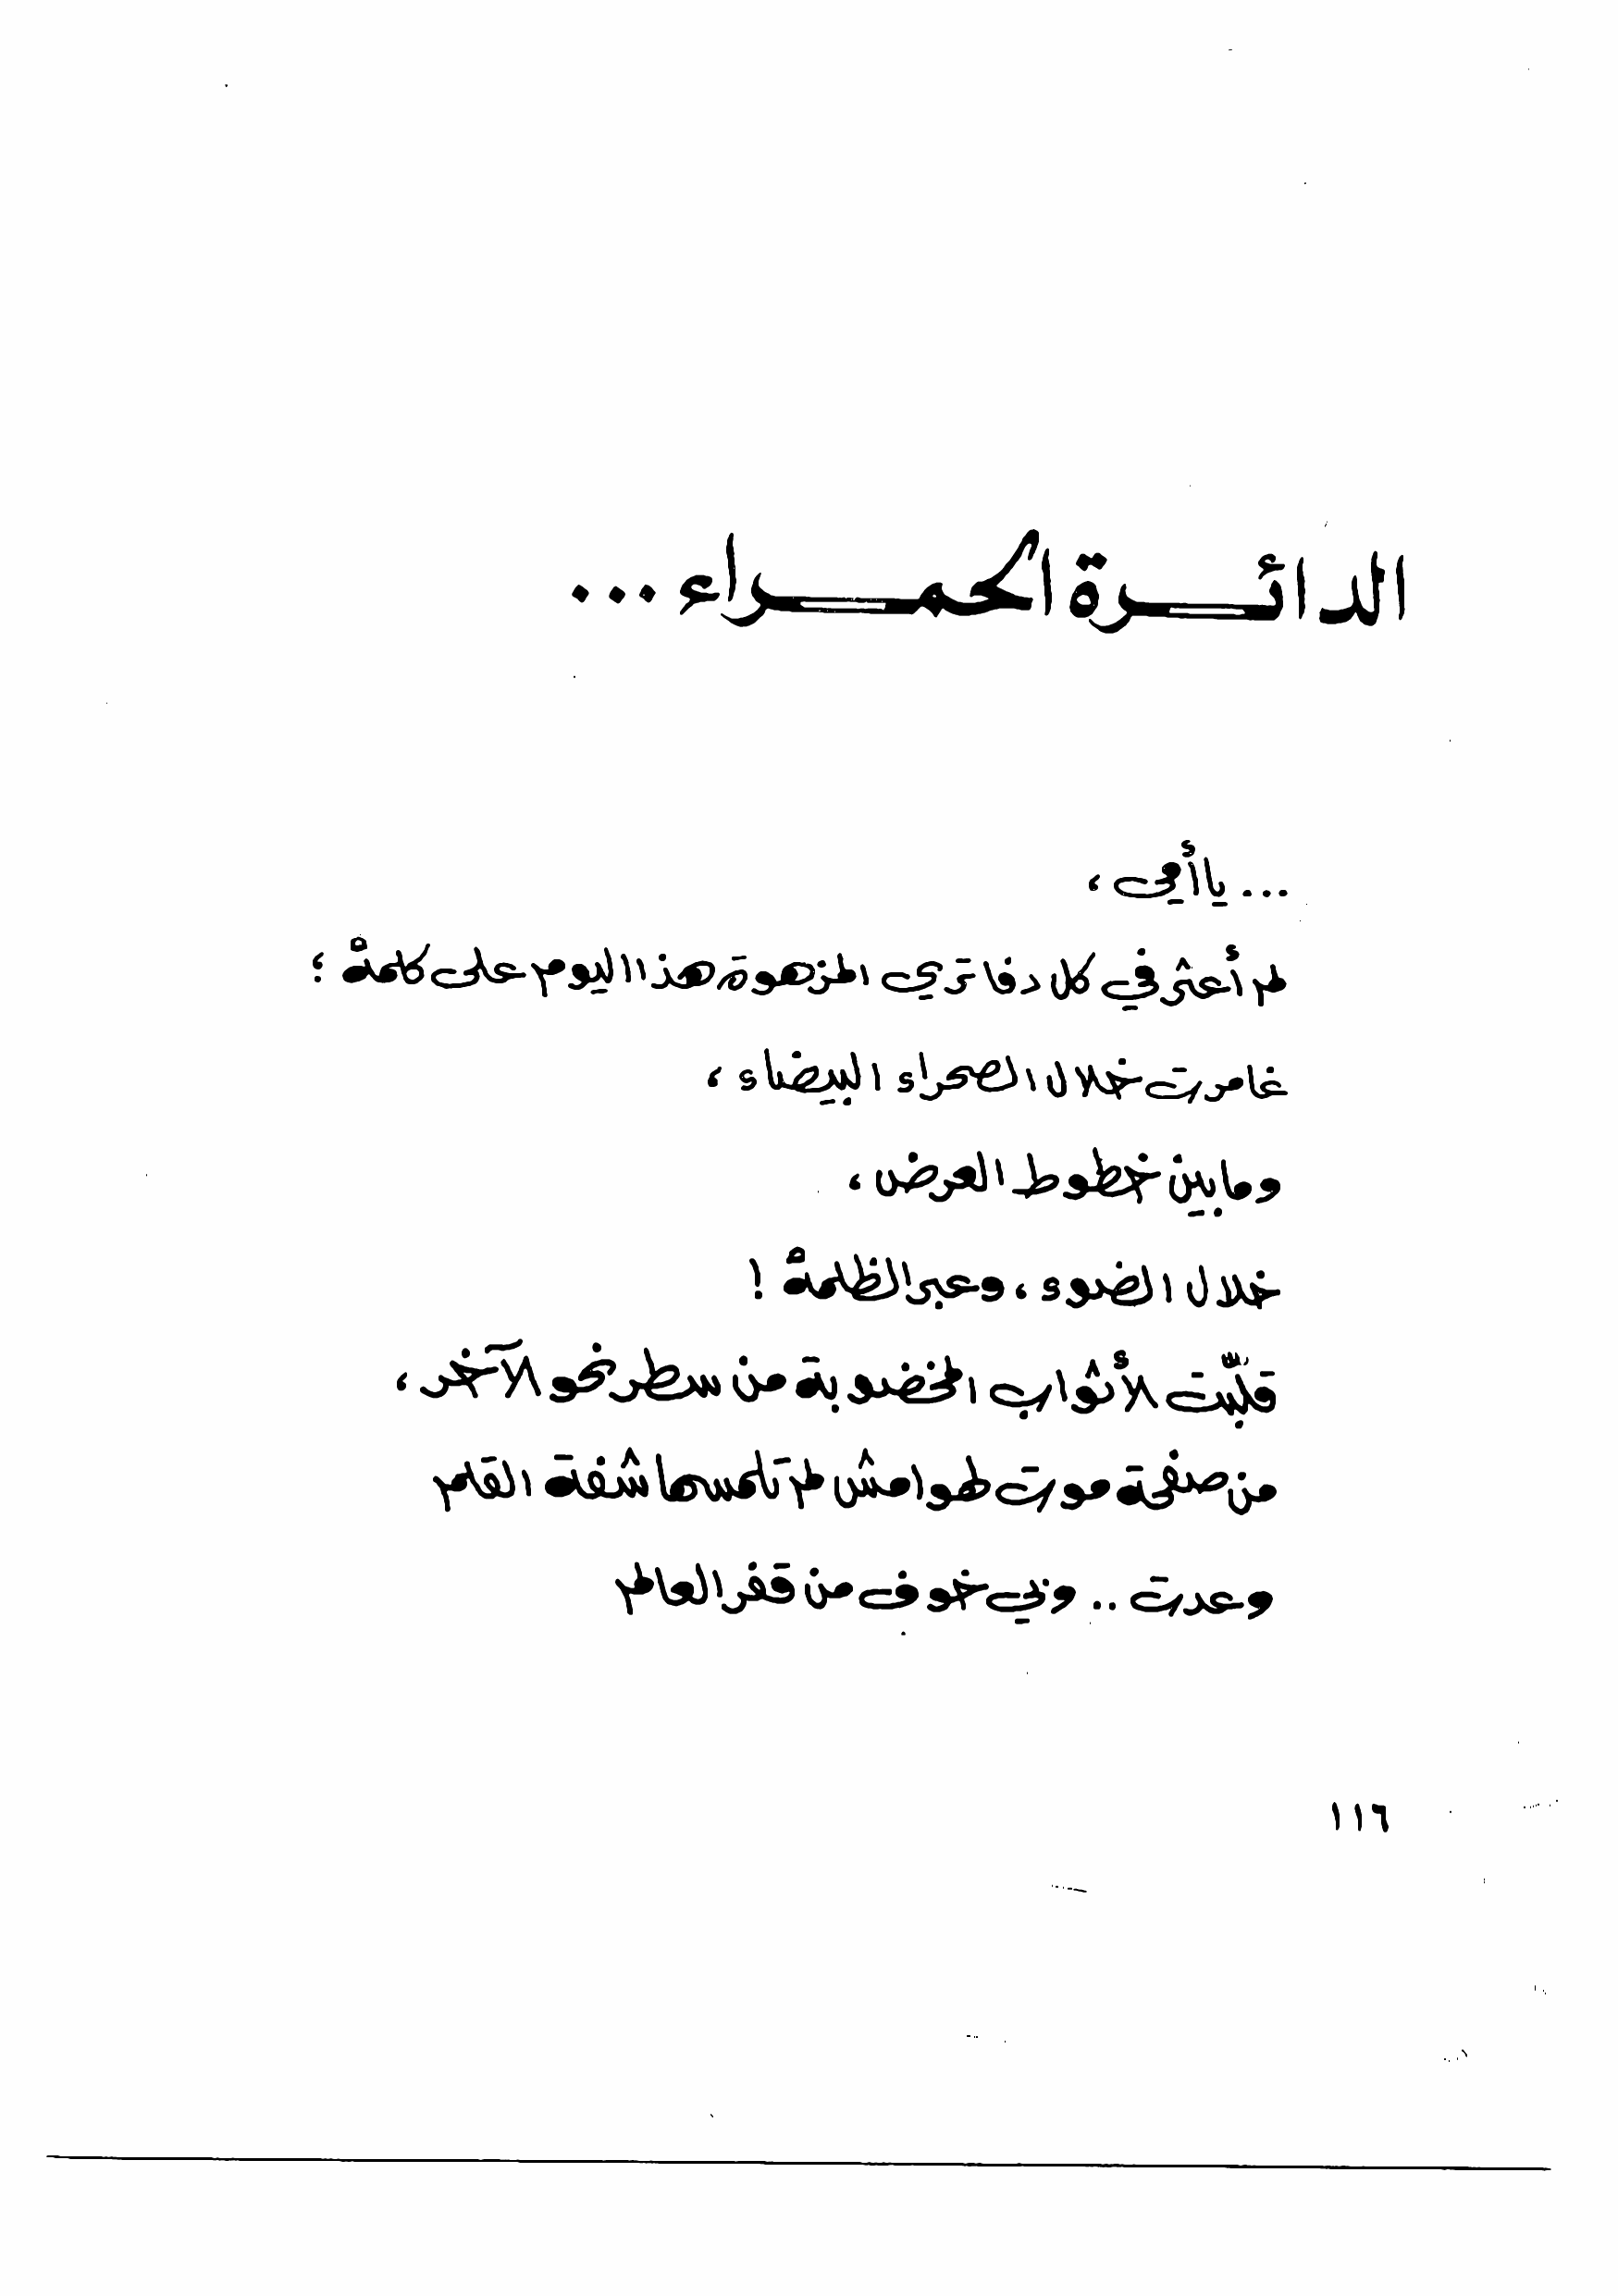 الدائرة الحمراء ...
... يا أمي ،
لم أعثر في كل دفاتري المزهوة هذا اليوم على كلمةْ ؛
غامرت خلال الصحراء البيضاء ،
وما بين خطوط العرض ،
خلال الضوء ، وعبر الظلمةْ !
قلبّت الأثواب المخضوبة من سطر نحو الآخر ،
من صفحة موت لهوامش لم تلمسها شفة القلم
وعدت .. وبي خوف من قفر العالم
١١٦